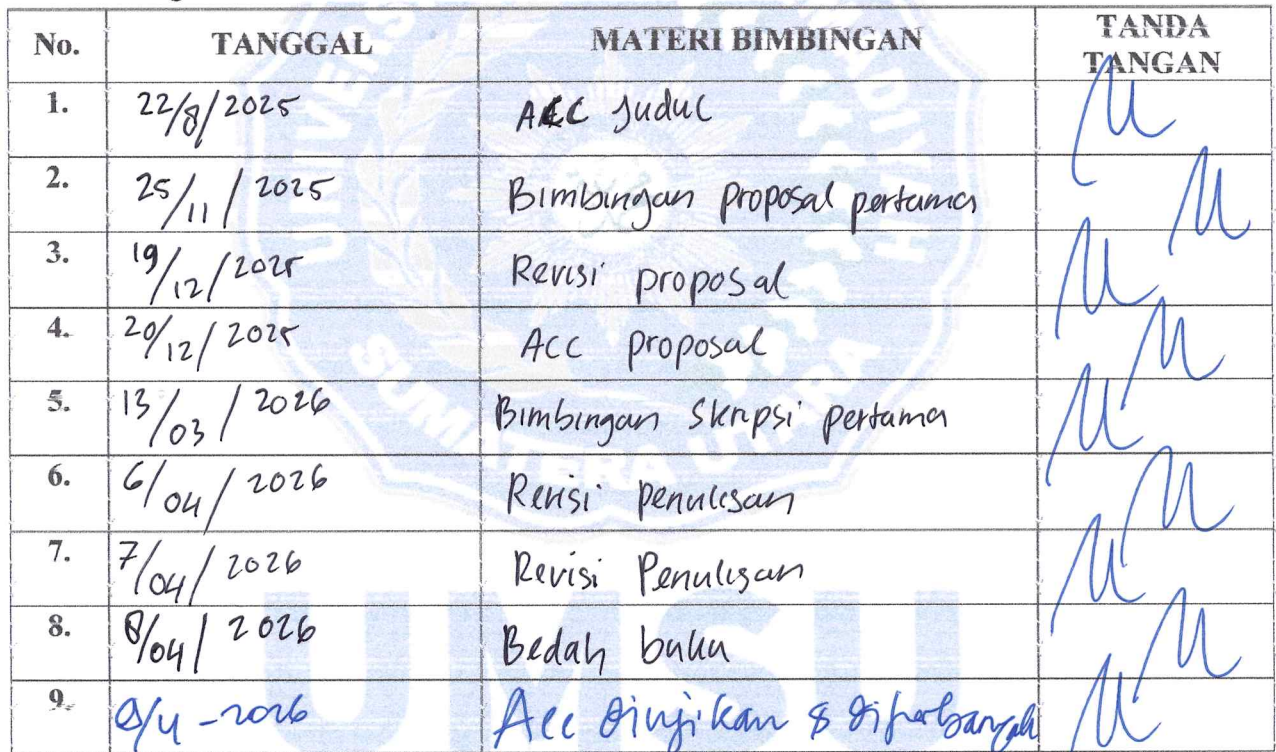 No. TANGGAL MATERI BIMBINGAN TANDA TANGAN
1. 22/8/2025 ACC Judul
2. 25/11/2025 Bimbingan proposal pertama
3. 19/12/2025 Revisi proposal
4. 20/12/2025 Acc proposal
5. 13/03/2026 Bimbingan Skripsi pertama
6. 6/04/2026 Revisi penulisan
7. 7/04/2026 Revisi Penulisan
8. 8/04/2026 Bedah buku
9. /4-2026 Acc diujikan & diperbanyak
UNIVERS
SUMATERA UTARA
UMSU